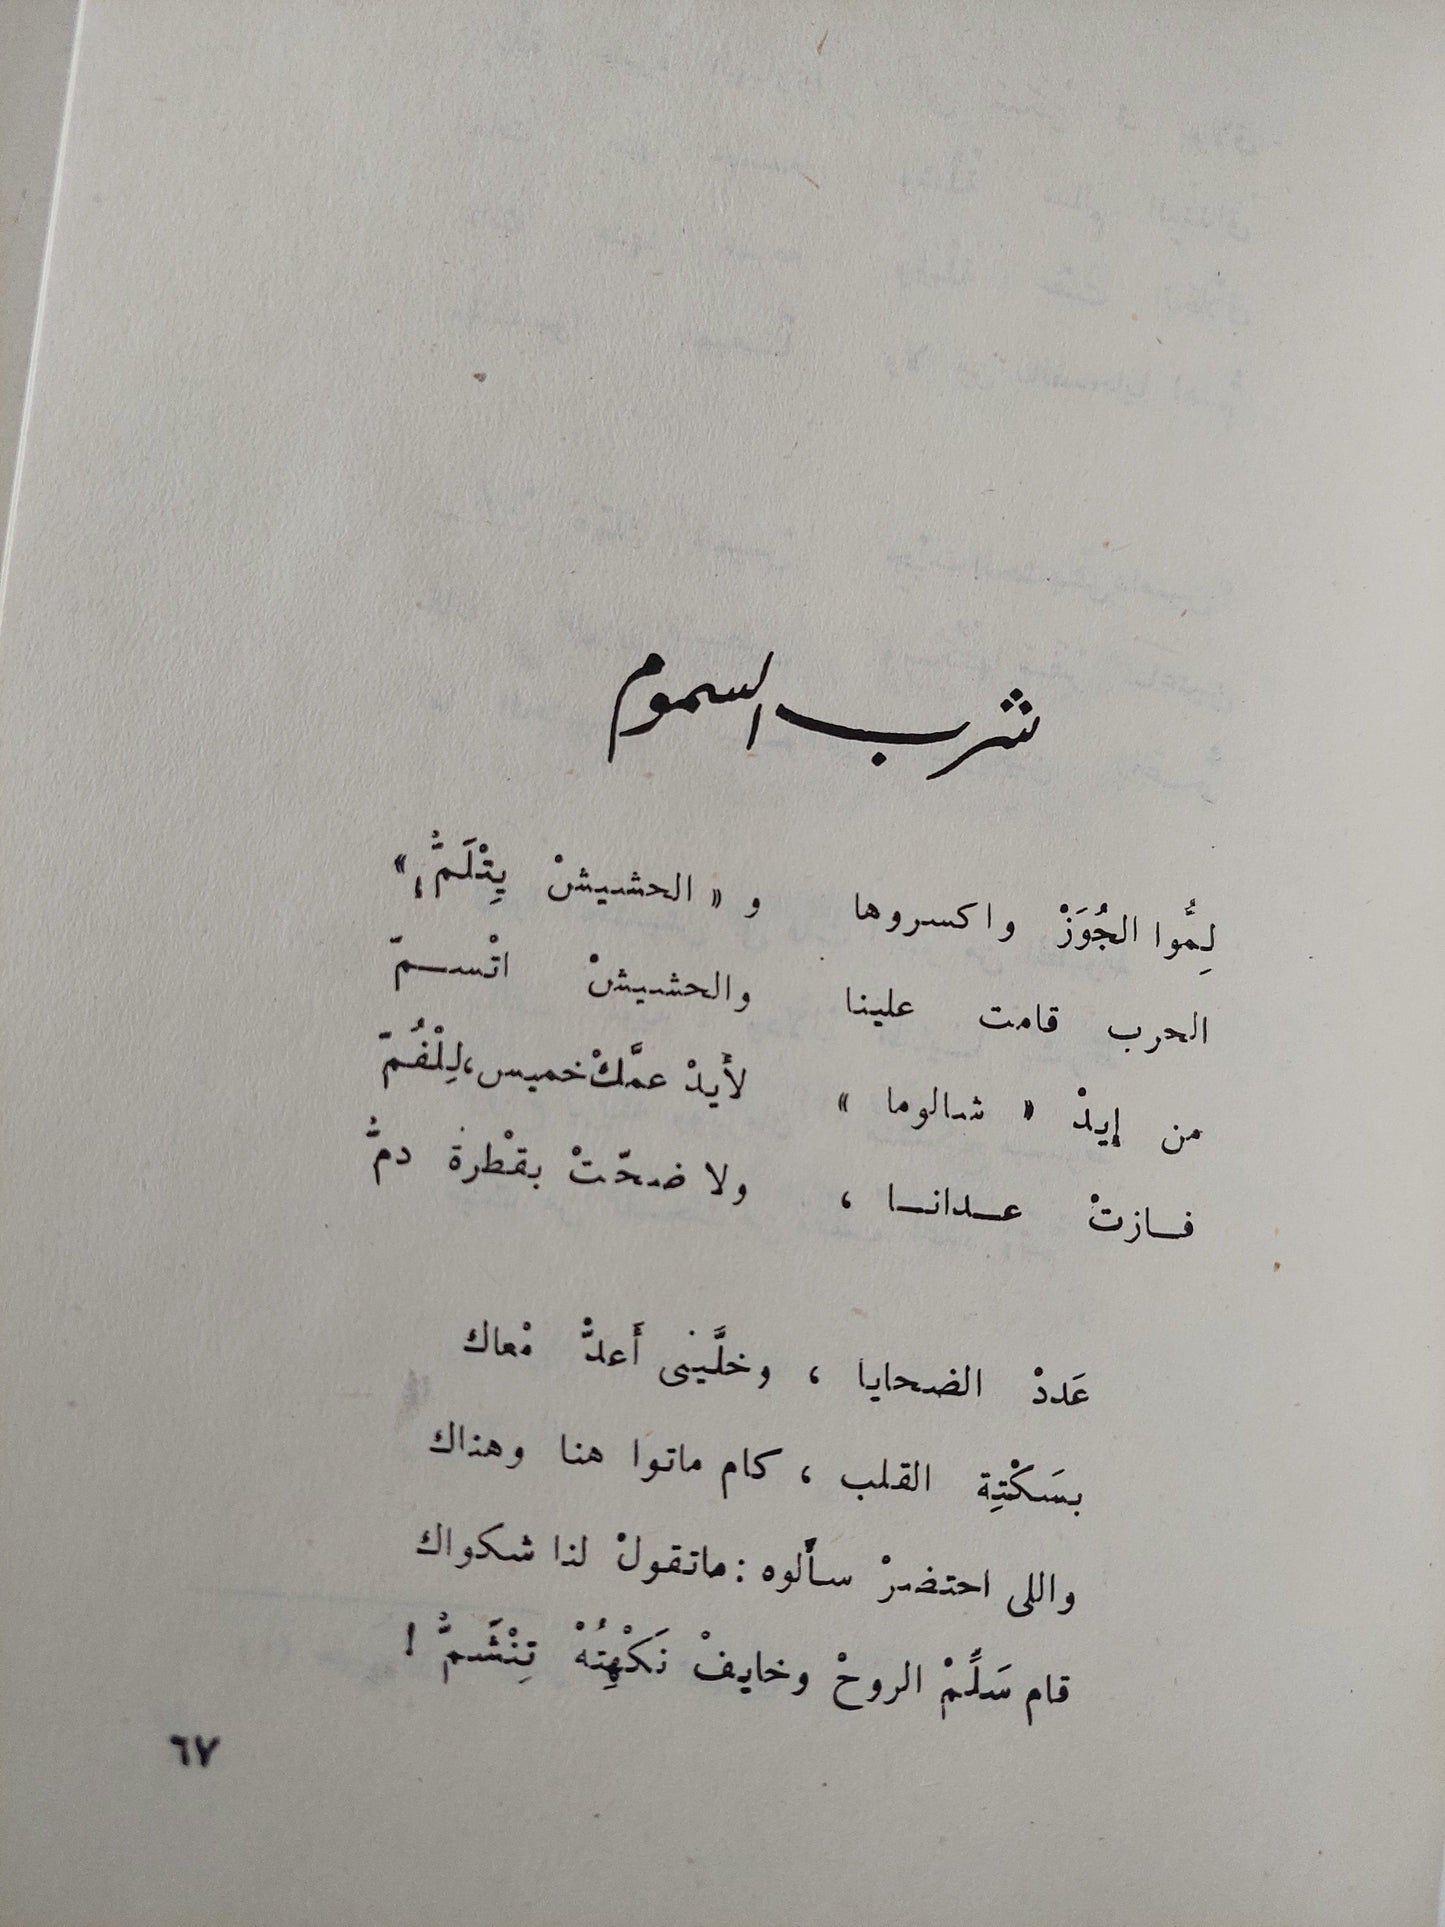 شرب السموم
لِمُّوا الجُوَزْ واكسروها و «الحشيشْ يِتْلَمُّ،»
الحرب قامت علينا والحشيشْ اتْسـمّ
من إيدْ « شالوما » لأيدْ عمَّكْ خميس، لِلْفُمّ
فـازتْ عـدانـا ، ولا ضحّتْ بقْطرة دمُّ
عَددْ الضحايا ، وخلَّينى أَعدُّ مْعاك
بسَكْتِة القلب ، كام ماتوا هنا وهناك
واللى احتضرْ سألوه : ماتقولْ لنا شكواك
قام سَلِّمْ الروحْ وخايفْ نَكْهِتُهْ تِنْشَمُّ !
٦٧